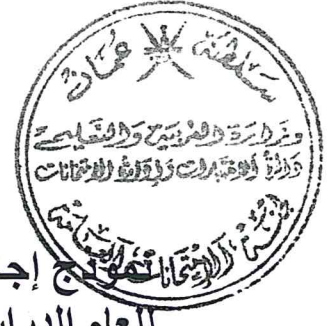 سلطنة عمان
وزارة التربية والتعليم
دائرة الاختبارات وإدارة الامتحانات
الامتحانات العامة
نموذج إجـ
العام الدرا